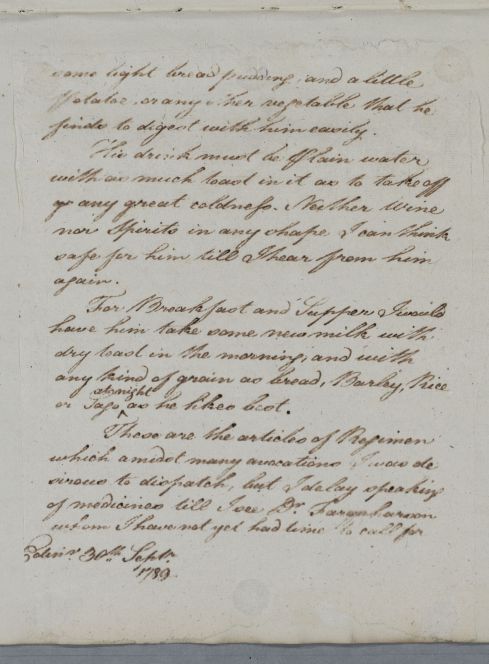 some light bread pudding, and a little
Potatoe, or any other vegetable that he
finds to digest with him easily.
His drink must be Plain water
with as much toast in it as to take off
any great coldness. Neither Wine
nor Spirits in any shape I can think
safe for him till I hear from him
again.
For Breakfast and Supper I would
have him take some new milk with
dry toast in the morning, and with
any kind of grain as bread, Barley, Rice
at night
or Sago, as he likes best.
These are the articles of Regimen
which amidst many avocations I was de
sirous to dispatch, but I delay speaking
of medicines till I see Dr. Farquharson
whom I have not yet had time to call for
Edinr. 30th. Septr.